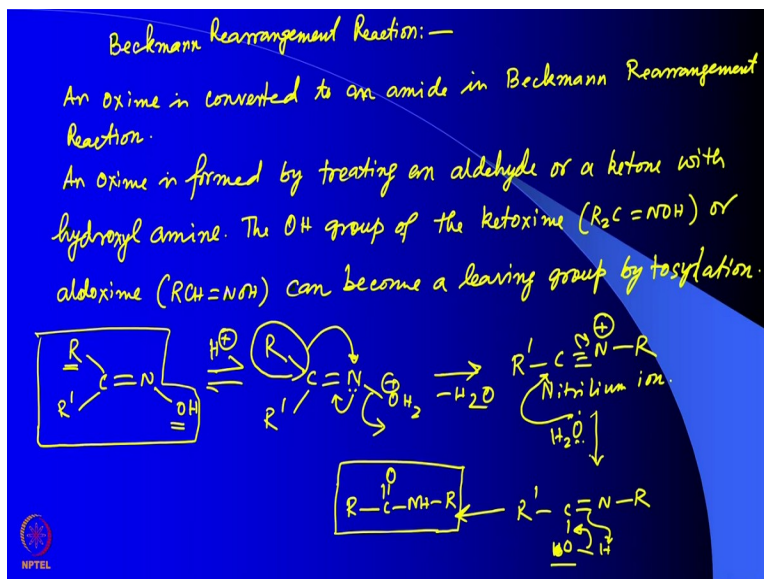 Beckmann Rearrangement Reaction:—
An oxime is converted to an amide in Beckmann Rearrangement
Reaction.
An oxime is formed by treating an aldehyde or a ketone with
hydroxyl amine. The OH group of the ketoxime (R₂C=NOH) or
aldoxime (RCH=NOH) can become a leaving group by tosylation.
R R' C=N OH H⊕ ⇌ R R' C=N ⊕OH₂ → -H₂O R'-C≡N⊕-R
Nitrilium ion.
H₂O
R-C(=O)-NH-R ← R'-C=N-R
O-H
NPTEL